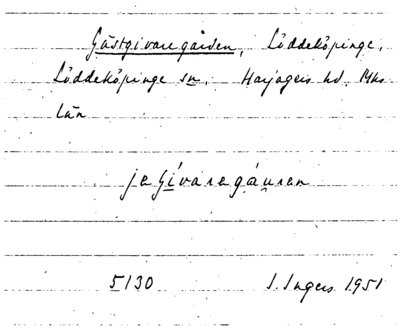 Gästgivaregården, Löddeköpinge,
Löddeköpinge sn. Harjagers hd. Mhs
län
jeGívaregáuren
5130 I. Ingers 1951